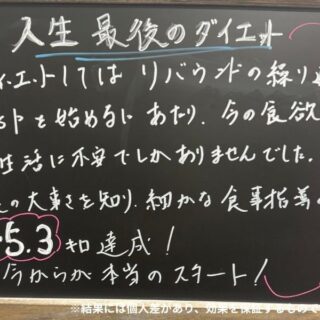 人生 最後のダイエット
イエットしては リバウンドの繰り
を始めるにあたり、今の食欲
生活に不安でしかありませんでした。
の大事さを知り、細かな食事指導
5.3キロ達成！
今からが本当のスタート！
※結果には個人差があり、効果を保証するもので